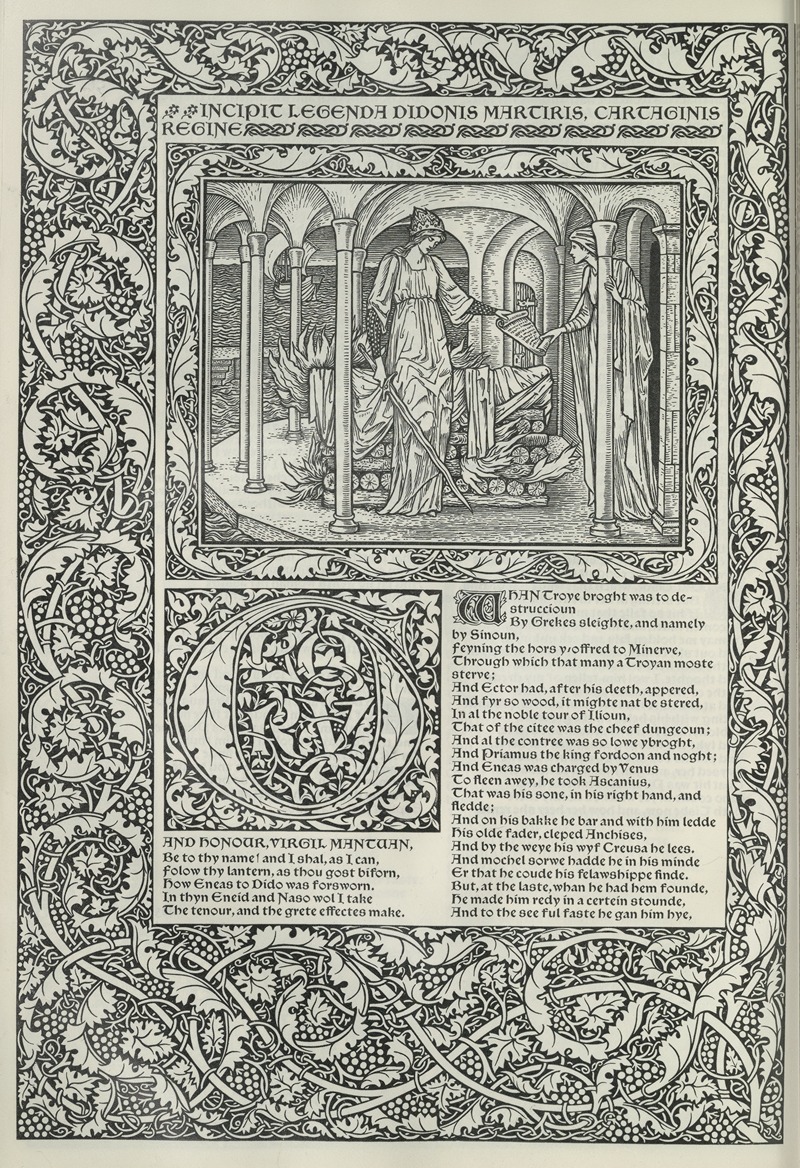 INCIPIT LEGENDA DIDONIS MARTIRIS, CARTAGINIS
REGINE
GLORY
AND HONOUR, VIRGIL MANTUAN,
Be to thy name! and I shal, as I can,
Folow thy lantern, as thou gost biforn,
How Eneas to Dido was forsworn.
In thyn Eneid and Naso wol I take
The tenour, and the grete effectes make.
WHAN Troye broght was to de-
struccioun
By Grekes sleighte, and namely
by Sinoun,
Feyning the hors y-offred to Minerve,
Through which that many a Troyan moste
sterve;
And Ector had, after his deeth, appered,
And fyr so wood, it mighte nat be stered,
In al the noble tour of Ilioun,
That of the citee was the cheef dungeoun;
And al the contree was so lowe ybroght,
And Priamus the king fordoon and noght;
And Eneas was charged by Venus
To fleen awey, he took Ascanius,
That was his sone, in his right hand, and
fledde;
And on his bakke he bar and with him ledde
His olde fader, cleped Anchises,
And by the weye his wyf Creusa he lees.
And mochel sorwe hadde he in his minde
Er that he coude his felawshippe finde.
But, at the laste, whan he had hem founde,
He made him redy in a certein stounde,
And to the see ful faste he gan him hye,